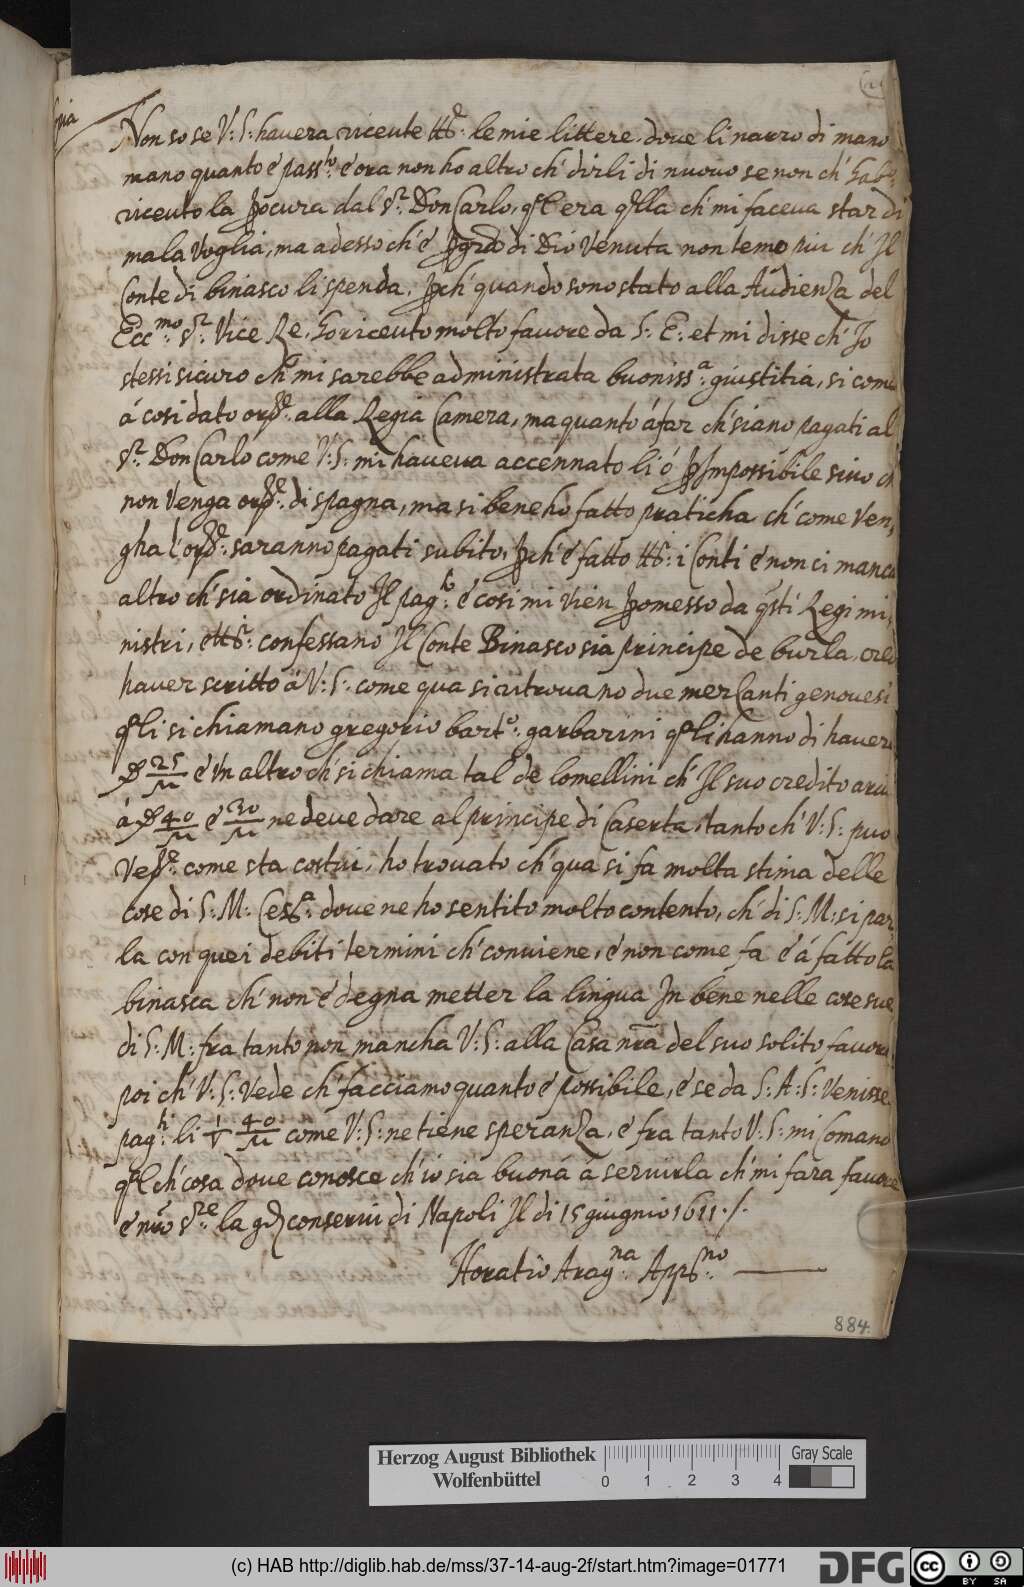 Non so se V: S: havera riceute tt.e le mie littere, dove li narro di mano
mano quanto é pass.to é ora non ho altro ch' dirli di nuovo se non ch' ho
riceuto la procura dal S.r Don Carlo, q.l era q.lla ch' mi faceva star di
mala voglia, ma adesso ch' é per gra di Dio Venuta non temo piu ch' Il
Conte di binasco li spenda, perch' quando sono stato alla Audienza del
Ecc.mo S.r Vice Re, ho riceuto molto favore da S: E: et mi disse ch' Io
stessi sicuro ch' mi sarebbe administrata buoniss.a giustitia, si come
á cosi dato ord.e alla Regia Camera, ma quanto á far ch' siano pagati al
S.r Don Carlo come V: S: mi haveva accennato li ó per Impossibile sino ch'
non Venga ord.e di spagna, ma si bene ho fatto praticha ch' come Ven,
gha l'ord.e saranno pagati subito, perch' é fatto tt.i i Conti é non ci manca
altro ch' sia ordinato Il pag.to é cosi mi vien promesso da q.sti Regi mi,
nistri, é tt.i confessano Il Conte Binasco sia principe de burla, credo
haver scritto á V: S: come qua si ritrovano due mercanti genovesi
q.li si chiamano gregorio bart.o garbarini q.li hanno di havere
25/M é Un altro ch' si chiama tal de lomellini ch' Il suo credito arri
á 40/M é 30/M ne deve dare al principe di Caserta, tanto ch' V: S: puo
Ved.e come sta costui, ho trovato ch' qua si fa molta stima delle
cose di S: M: Ces.a dove ne ho sentito molto contento, ch' di S: M: si par,
la con quei debiti termini ch' conviene, é non come fa é á fatto la
binasca ch' non é degna metter la lingua In bene nelle cose sue
di S: M: fra tanto non mancha V: S: alla Casa nra del suo solito favore
poi ch' V: S: Vede ch' facciamo quanto é possibile, é se da S: A: S: Venisse
pag.ti li 40/M come V: S: ne tiene speranza, é fra tanto V: S: mi Comano
q.l ch' cosa dove conosce ch' io sia buona á servirla ch' mi fara favore
é nro S.re la g.d conservi di Napoli Il di 15 giugnio 1611 ./.
Horatio Arag.na App.no
884.
Herzog August Bibliothek
Wolfenbüttel
0 1 2 3 4
Gray Scale
(c) HAB http://diglib.hab.de/mss/37-14-aug-2f/start.htm?image=01771
DFG
cc BY SA